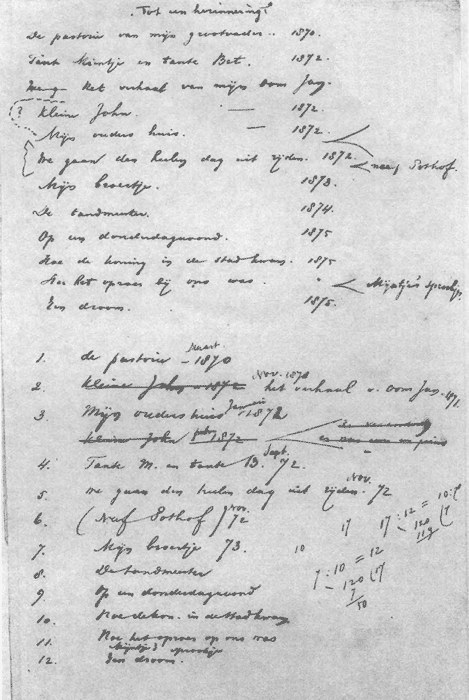 "Tot een herinnering"
De pastorie van mijn grootvader.. 1870.
Tante Mientje en tante Bet. 1872.
Het verhaal van mijn oom Jan.
? Kleine John. — 1872.
Mijn ouders huis. — 1872.
We gaan den heelen dag uit rijden. 1872.
neef Eothof.
Mijn broertje. 1873.
De tandmeester. 1874.
Op een donderdagavond. 1875
Hoe de koning in de stad kwam. 1875
Hoe het oproer bij ons was. "
Mijntje's sprookje
Een droom. 1875.
1. de pastorie - Maart 1870
2. Kleine John 1872 Nov. 1871 het verhaal v. oom Jan. 1871.
3. Mijn ouders huis Januari 1872
Kleine John 1872
4. Tante M. en tante B. Sept. 72.
5. We gaan den heelen dag uit rijden. Nov. 72
6. (Neef Eothof) Nov. 72
7. Mijn broertje 73.
8. De tandmeester
9 Op een donderdagavond
10. Hoe de kon. in de stad kwam
11. Hoe het oproer op ons was
Mijntje's sprookje
12. Een droom.
10 17 17 : 12 = 10 : 7
120
119
7 : 10 = 12
120
7
50